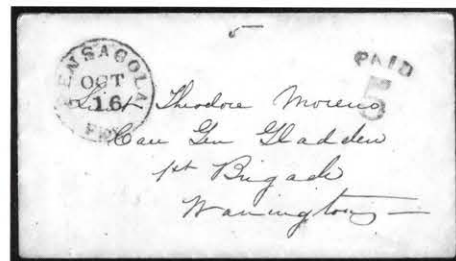 5
PENSACOLA
OCT
16
PAID
5
Lieut Theodore Moreno
Care Gen Gladden
1st Brigade
Warrington